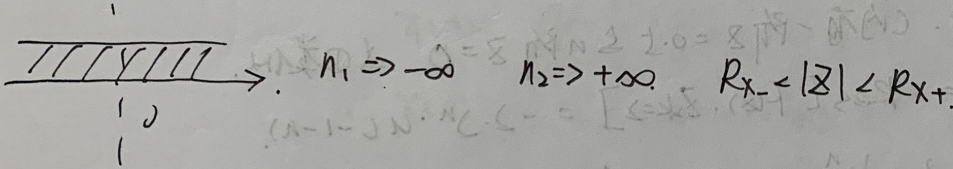 n₁ => -∞ n₂ => +∞ Rx- < |Z| < Rx+.
0